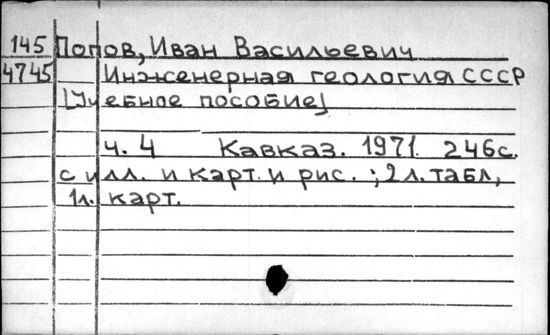 145 Попов, Иван Васильевич
4745 Инженерная геология СССР
[Учебное пособие]
ч. 4 Кавказ. 1971. 246с.
с илл. и карт. и рис. ; 2 л. табл,
1л. карт.